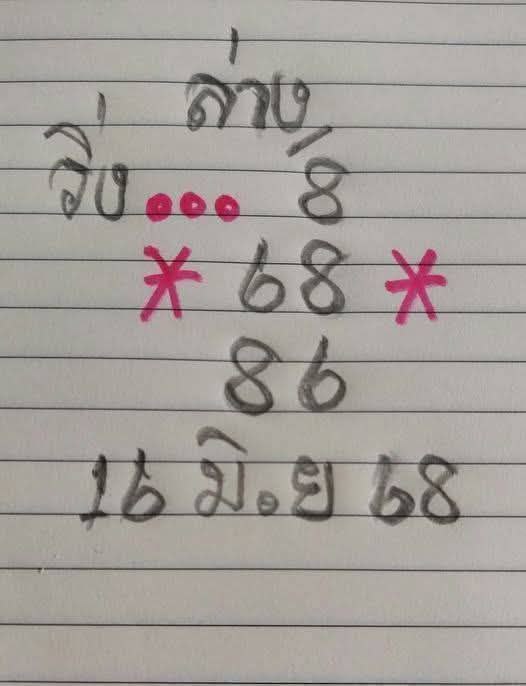 ล่าง
วิ่ง... 8
* 68 *
86
16 มิ.ย 68